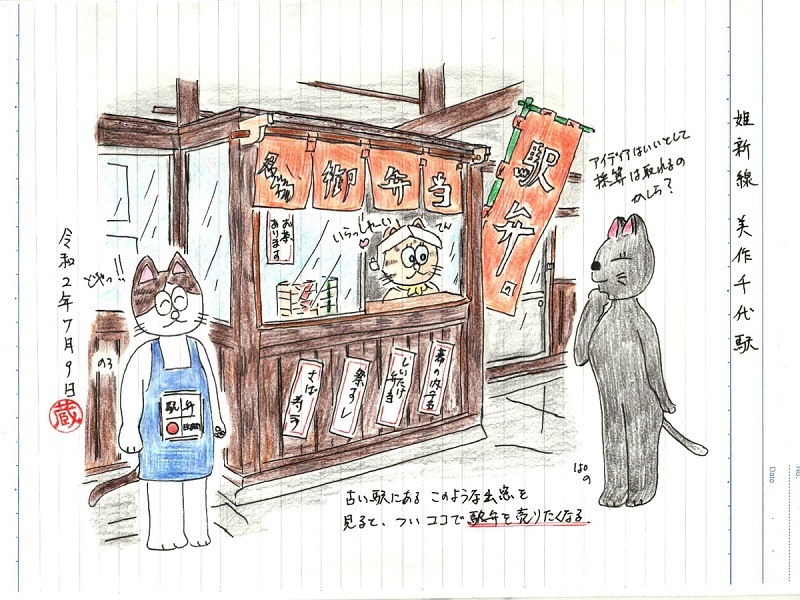 姫新線 美作千代駅
アイディアはいいとして
採算は取れるの
かしら?
駅弁
名物
御弁当
お茶
あります
いらっしゃーい
てん
幕の内弁当
しいたけ
弁当
祭ずし
さば寿司
どやっ!!
のろ
駅弁
EKIBEN
ぱの
令和2年7月9日
蔵
古い駅にある このような出窓を
見ると、ついココで駅弁を売りたくなる
no.
Date